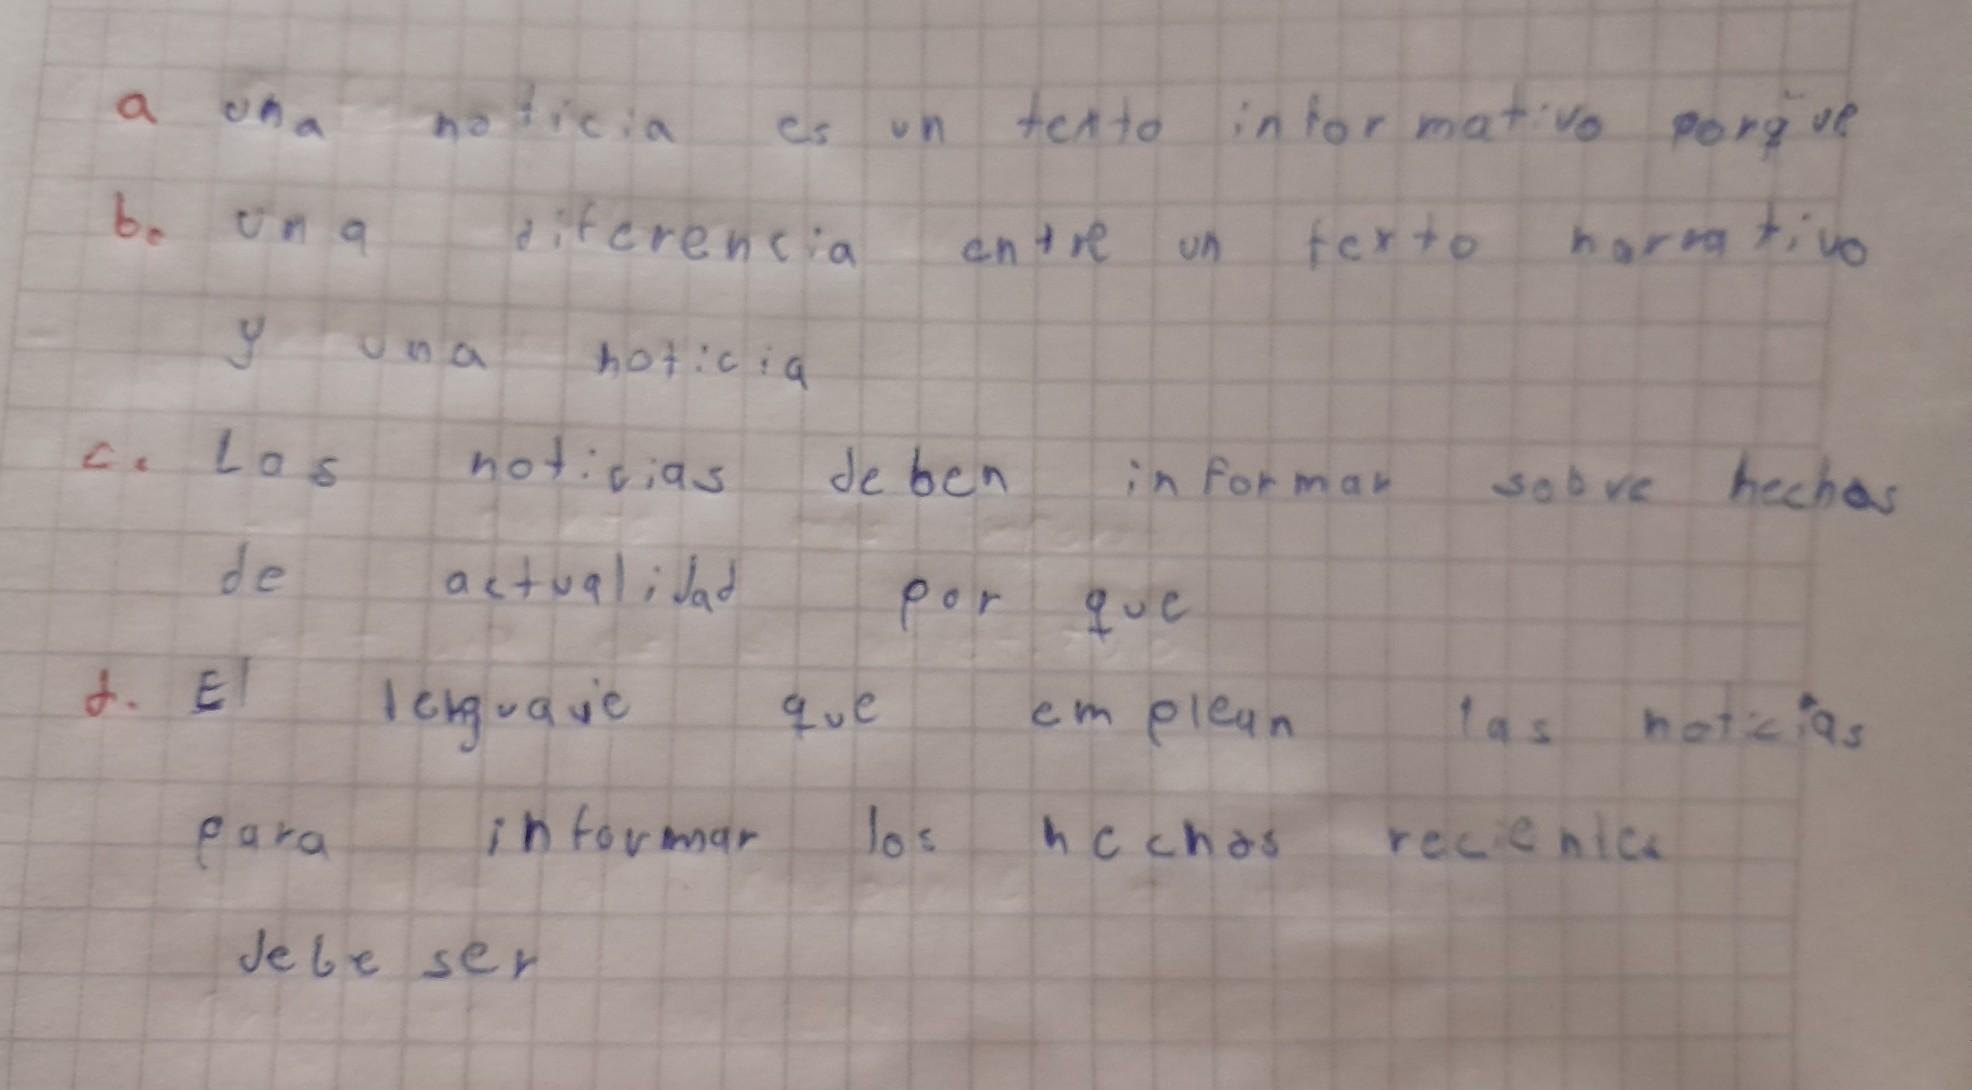 a una noticia es un texto informativo porque
b. una diferencia entre un texto narrativo
y una noticia
c. Las noticias deben informar sobre hechos
de actualidad por que
d. El lenguaje que emplean las noticias
para informar los hechos recientes
debe ser